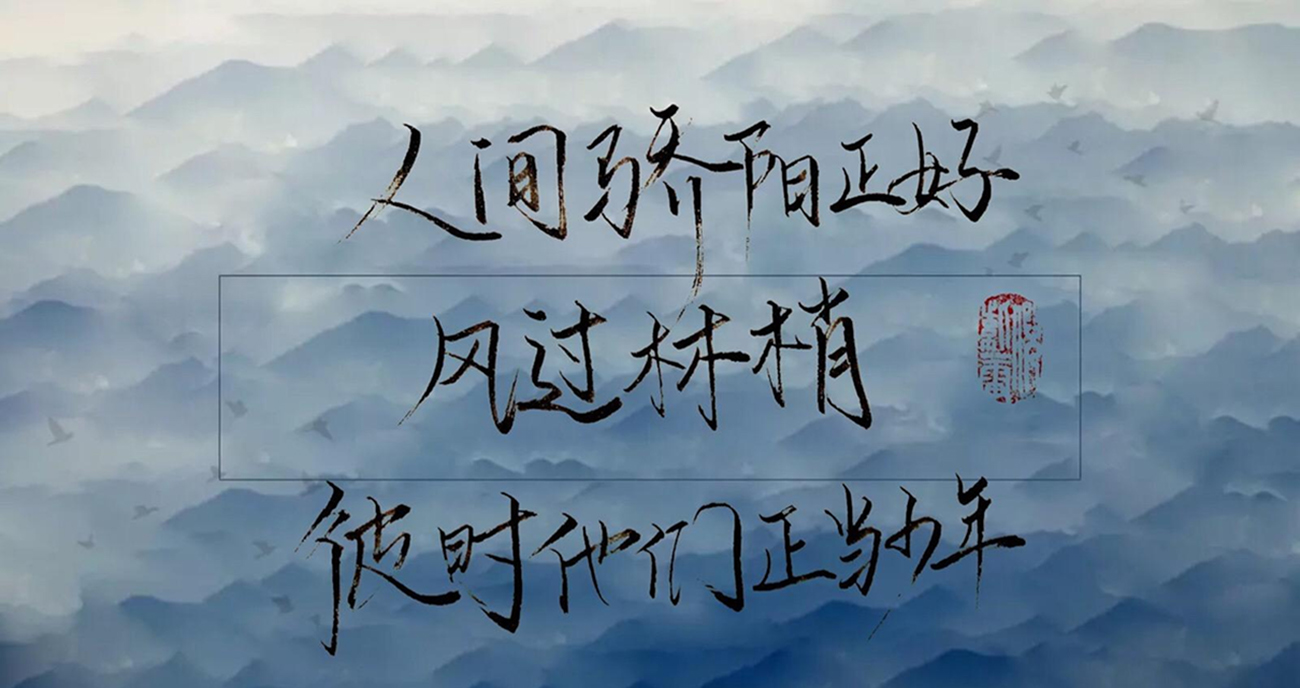 人间骄阳正好
风过林梢
彼时他们正当少年